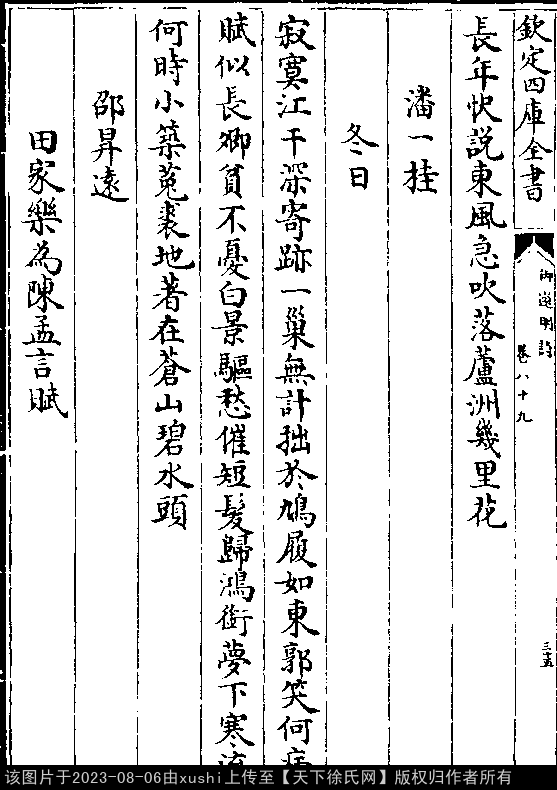 欽定四庫全書
御選明詩
卷八十九
三十五
長年快説東風急吹落蘆洲幾里花
潘一桂
冬日
寂寞江干深寄跡一巢無計拙於鳩履如東郭笑何病
賦似長卿貧不憂白景驅愁催短髪歸鴻銜夢下寒流
何時小築菟裘地著在蒼山碧水頭
邵昇遠
田家樂為陳孟言賦
该图片于2023-08-06由xushi上传至【天下徐氏网】版权归作者所有